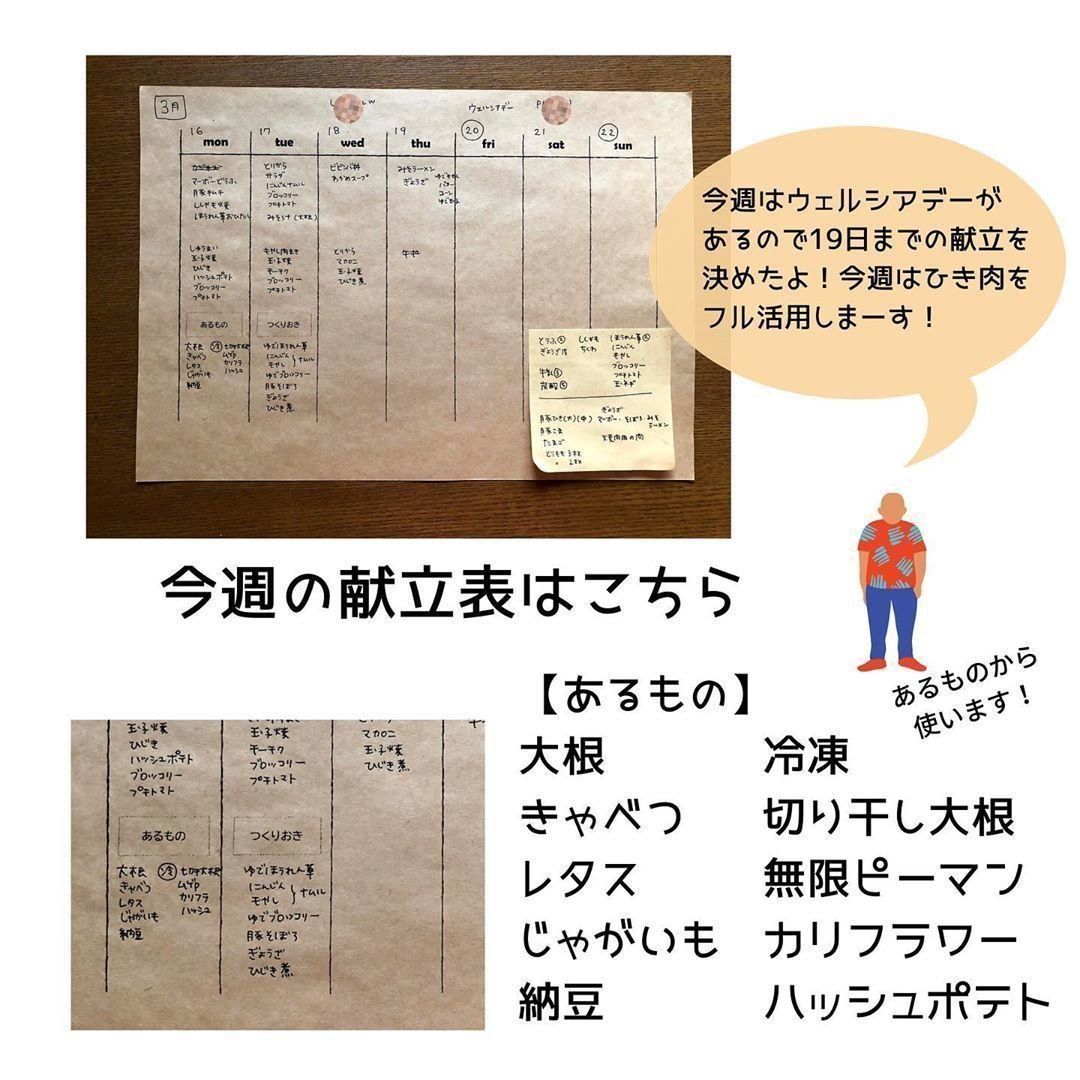 3月
ウェルシアデー
16 17 18 19 20 21 22
mon tue wed thu fri sat sun
マーボーどうふ
豚キムチ
ししゃも焼
ほうれん草おひたし
とりから
サラダ
にんじんナムル
ブロッコリー
プチトマト
みそ汁(大根)
ビビンバ丼
わかめスープ
みそラーメン
ぎょうざ
バター
コーン
しゅうまい
玉子焼
ひじき
ハッシュポテト
ブロッコリー
プチトマト
もやし肉まき
玉子焼
チーチク
ブロッコリー
プチトマト
とりから
マカロニ
玉子焼
ひじき煮
牛丼
あるもの
大根 冷 切干大根
きゃべつ ムゲンP
レタス カリフラ
じゃがいも ハッシュ
納豆
つくりおき
ゆでほうれん草
にんじん
もやし
ナムル
ゆでブロッコリー
豚そぼろ
ぎょうざ
ひじき煮
とうふ
ぎょうざ皮
牛乳
炭酸
ししゃも
ちくわ
ほうれん草
にんじん
もやし
ブロッコリー
プチトマト
玉ネギ
豚ひき(大)(中)
ぎょうざ
マーボー・そぼろ・みそ
ラーメン
豚こま
たまご
焼肉用の肉
とりもも 3枚
〃 2枚
今週はウェルシアデーが
あるので19日までの献立を
決めたよ！今週はひき肉を
フル活用しまーす！
今週の献立表はこちら
あるものから
使います！
玉子焼
ひじき
ハッシュポテト
ブロッコリー
プチトマト
玉子焼
チーチク
ブロッコリー
プチトマト
マカロニ
玉子焼
ひじき煮
あるもの
大根 冷 切干大根
きゃべつ ムゲンP
レタス カリフラ
じゃがいも ハッシュ
納豆
つくりおき
ゆでほうれん草
にんじん
もやし
ナムル
ゆでブロッコリー
豚そぼろ
ぎょうざ
ひじき煮
【あるもの】
大根
きゃべつ
レタス
じゃがいも
納豆
冷凍
切り干し大根
無限ピーマン
カリフラワー
ハッシュポテト